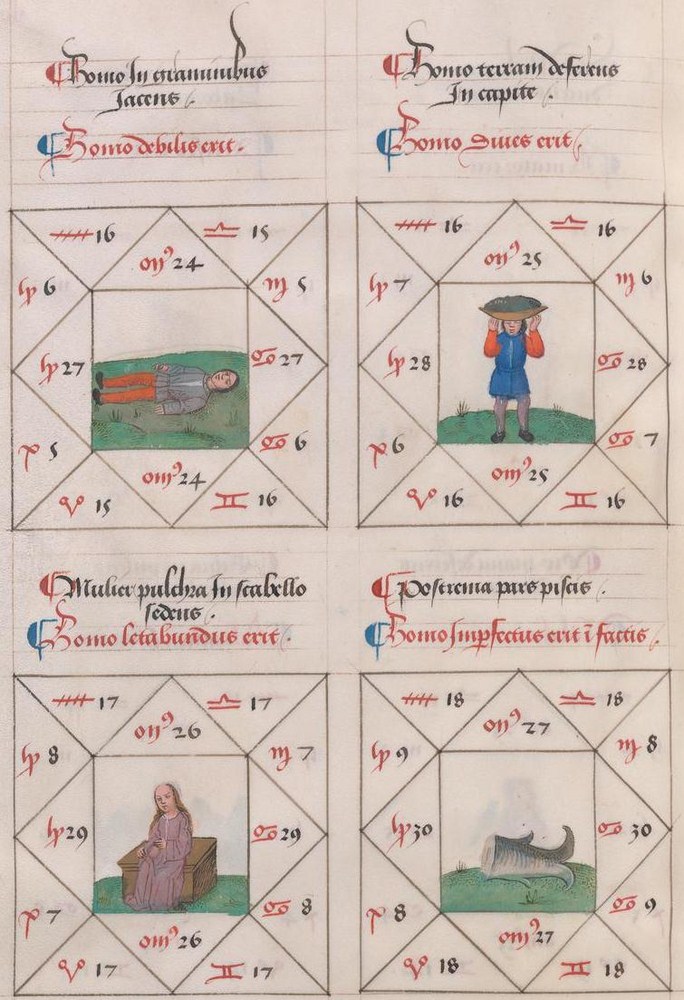 ¶Homo In graminibus
Jacens .
¶Homo debilis erit .
16 ♎ 15
24
6 5
27 27
5 6
24
♈ 15 ♊ 16
¶Homo terram deferens
In capite .
¶Homo Diues erit .
16 ♎ 16
25
7 6
28 28
6 7
25
♈ 16 ♊ 16
¶Mulier pulchra In scabello
sedens .
¶Homo letabundus erit .
17 ♎ 17
26
8 7
29 29
7 8
26
♈ 17 ♊ 17
¶Postrema pars piscis .
¶Homo Imꝑfectus erit ĩ factis .
18 ♎ 18
27
9 8
30 30
8 9
27
♈ 18 ♊ 18